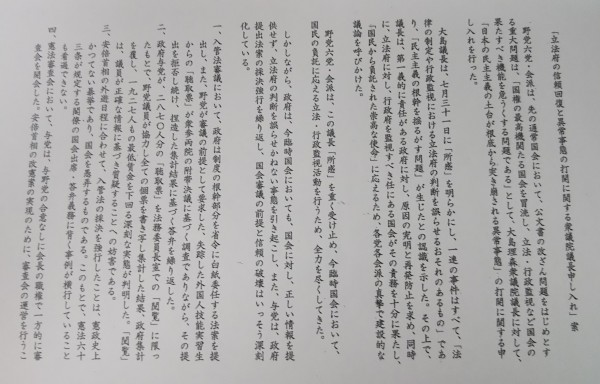 「立法府の信頼回復と異常事態の打開に関する衆議院議長申し入れ」案
野党六党・会派は、先の通常国会において、公文書の改ざん問題をはじめとす
る重大問題は、「国権の最高機関たる国会を冒涜し、立法・行政監視など国会の
果たすべき機能を危うくする問題である」として、大島理森衆議院議長に対して、
「日本の民主主義の土台が根底から突き崩される異常事態」の打開に関する申
し入れを行った。
大島議長は、七月三十一日に「所感」を明らかにし、一連の事件はすべて、「法
律の制定や行政監視における立法府の判断を誤らせるおそれのあるもの」であ
り、「民主主義の根幹を揺るがす問題」が生じたとの認識を示した。その上で、
議長は、第一義的に責任がある政府に対し、原因の究明と再発防止を求め、同時
に、立法府に対し、行政府を監視すべき任にある国会がその責務を十分に果たし、
「国民から負託された崇高な使命」に応えるため、各党各会派の真摯で建設的な
議論を呼びかけた。
野党六党・会派は、この議長「所感」を重く受け止め、今臨時国会において、
国民の負託に応える立法・行政監視活動を行うため、全力を尽くしてきた。
しかしながら、政府は、今臨時国会においても、国会に対し、正しい情報を提
供せず、立法府の判断を誤らせかねない事態を引き起こし、また、与党は、政府
提出法案の採決強行を繰り返し、国会審議の前提と信頼の破壊はいっそう深刻
化している。
一、入管法審議において、政府は制度の根幹部分を省令に白紙委任する法案を提
出し、また、野党が審議の前提として要求した、失踪した外国人技能実習生
からの「聴取票」が衆参両院の附帯決議に基づく調査でありながら、その提
出を拒否し続け、捏造した集計結果に基づく答弁を繰り返した。
二、政府与党が、二八七〇人分の「聴取票」を法務委員長室での「閲覧」に限っ
たもとで、野党議員が協力し全ての個票を書き写し集計した結果、政府集計
を覆し、一九二七人もの最低賃金を下回る深刻な実態が判明した。「閲覧」
は、議員が正確な情報に基づき質疑することへの妨害である。
三、安倍首相の外遊日程に合わせて、入管法の採決を強行したことは、憲政史上
かつてない暴挙であり、国会を愚弄するものである。このもとで、憲法六十
三条が規定する閣僚の国会出席・答弁義務に背く事例が横行していること
も看過できない。
四、憲法審査会において、与党は、与野党の合意なしに会長の職権で一方的に審
査会を開会した。安倍首相の改憲案の実現のために、審査会の運営を行うこ